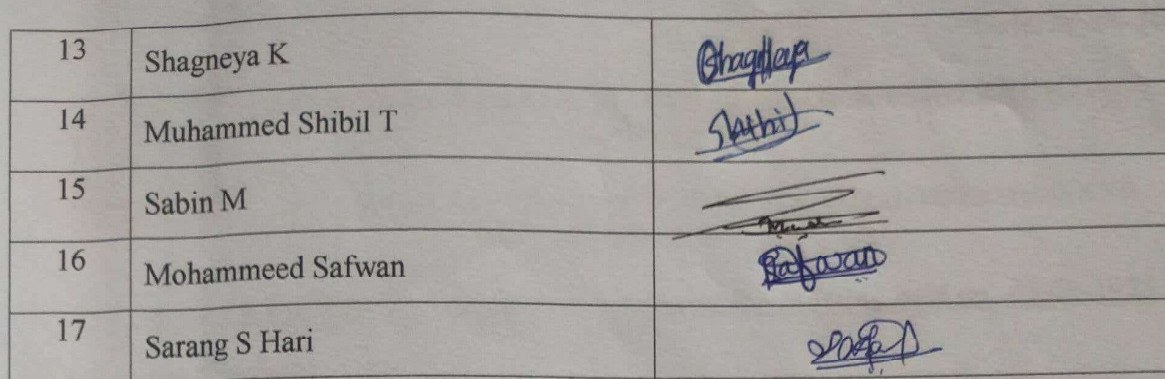 13 Shagneya K
14 Muhammed Shibil T
15 Sabin M
16 Mohammeed Safwan Safwan
17 Sarang S Hari